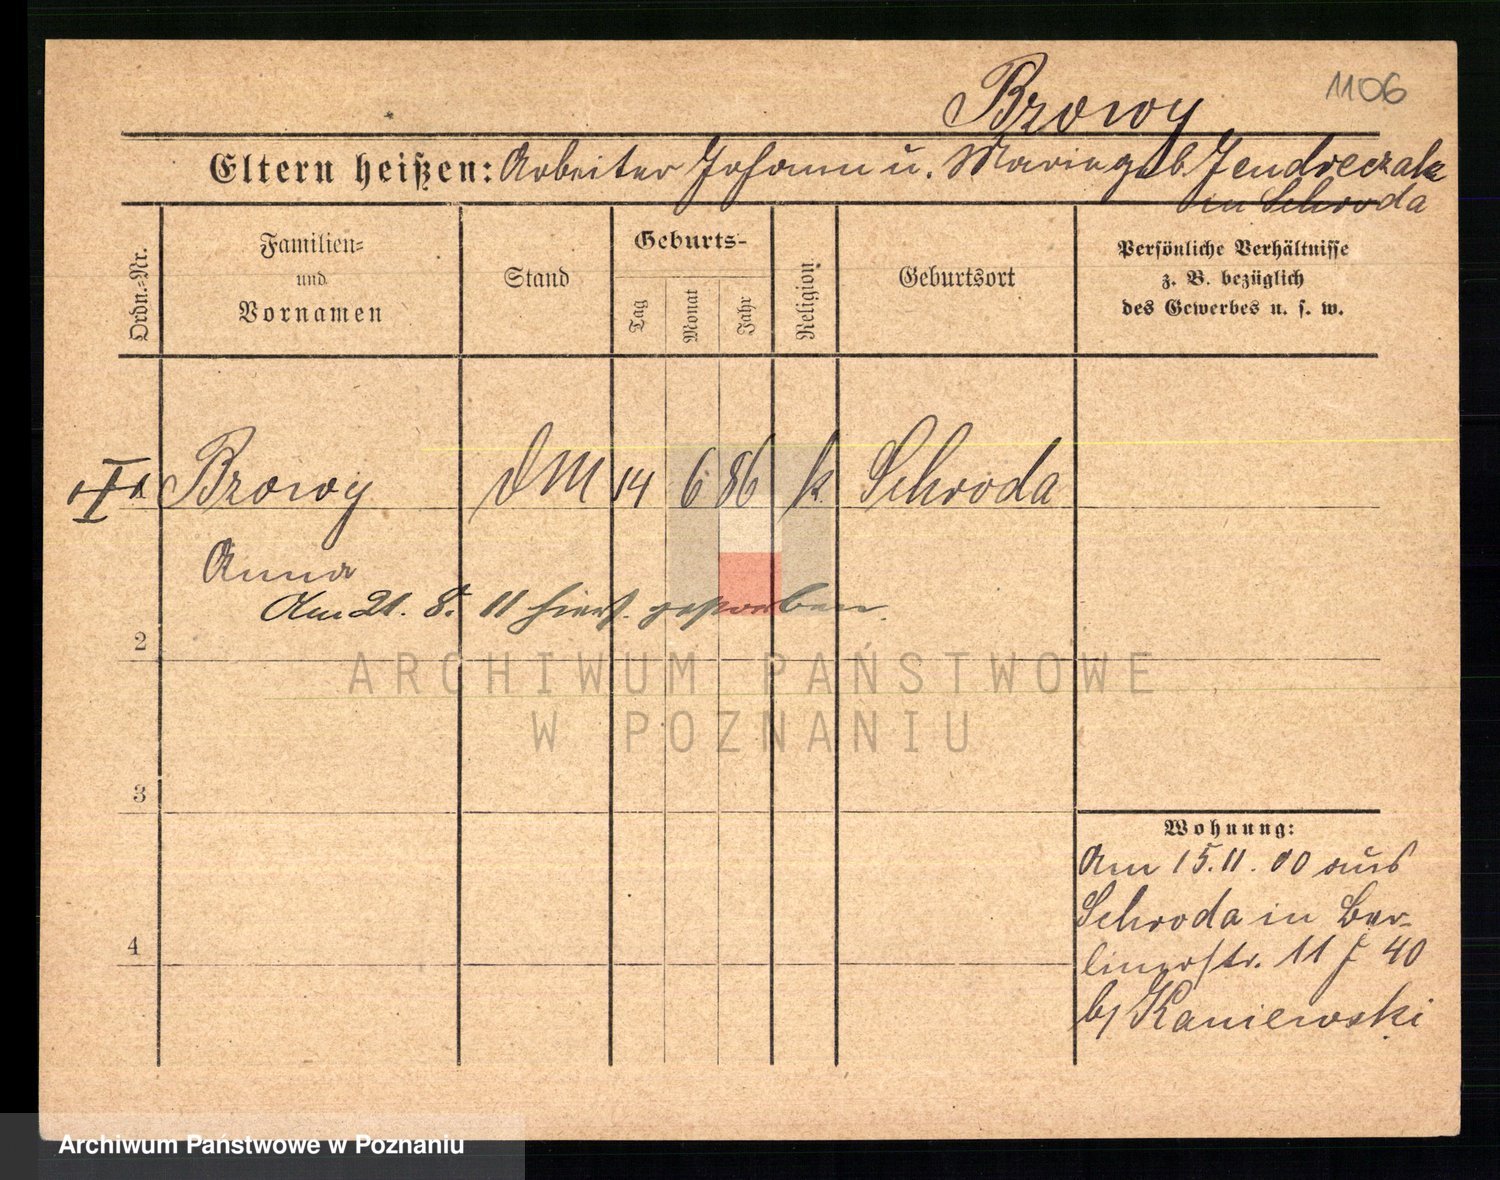 Brzowy
1106
Eltern heißen: Arbeiter Johann u. Marie geb. Jendreczak
in Schroda
Ordn.-Nr.
Familien-
und
Vornamen
Stand
Geburts-
Tag
Monat
Jahr
Religion
Geburtsort
Persönliche Verhältnisse
z. B. bezüglich
des Gewerbes u. s. w.
Brzowy DM 14 6 86 k. Schroda
Anna
Am 21. 8. 11 hiers. gestorben.
2
3
4
Wohnung:
Am 15.11.00 aus
Schroda in Ber-
linerstr. 11 J 40
b/ Kaniewski
ARCHIWUM PAŃSTWOWE
W POZNANIU
Archiwum Państwowe w Poznaniu